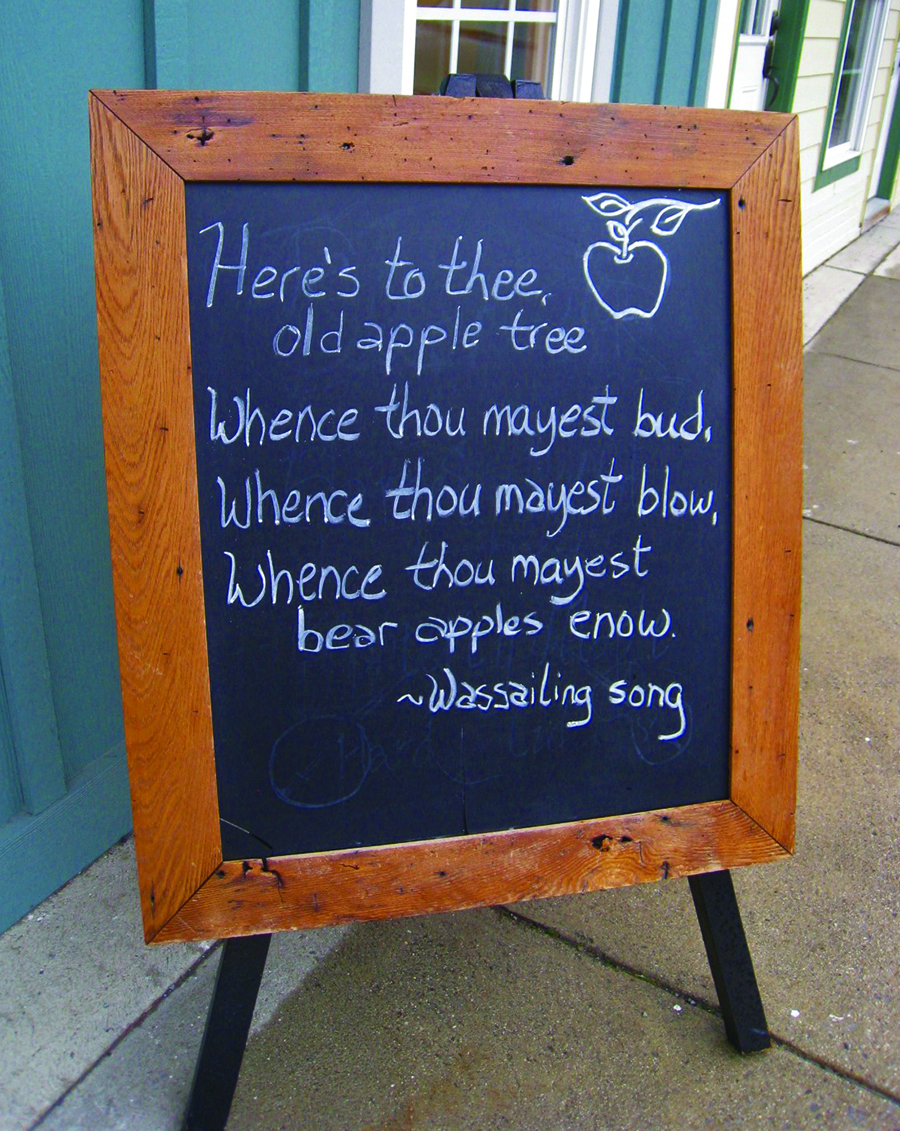 Here's to thee,
old apple tree
Whence thou mayest bud,
Whence thou mayest blow,
Whence thou mayest
bear apples enow.
~Wassailing song